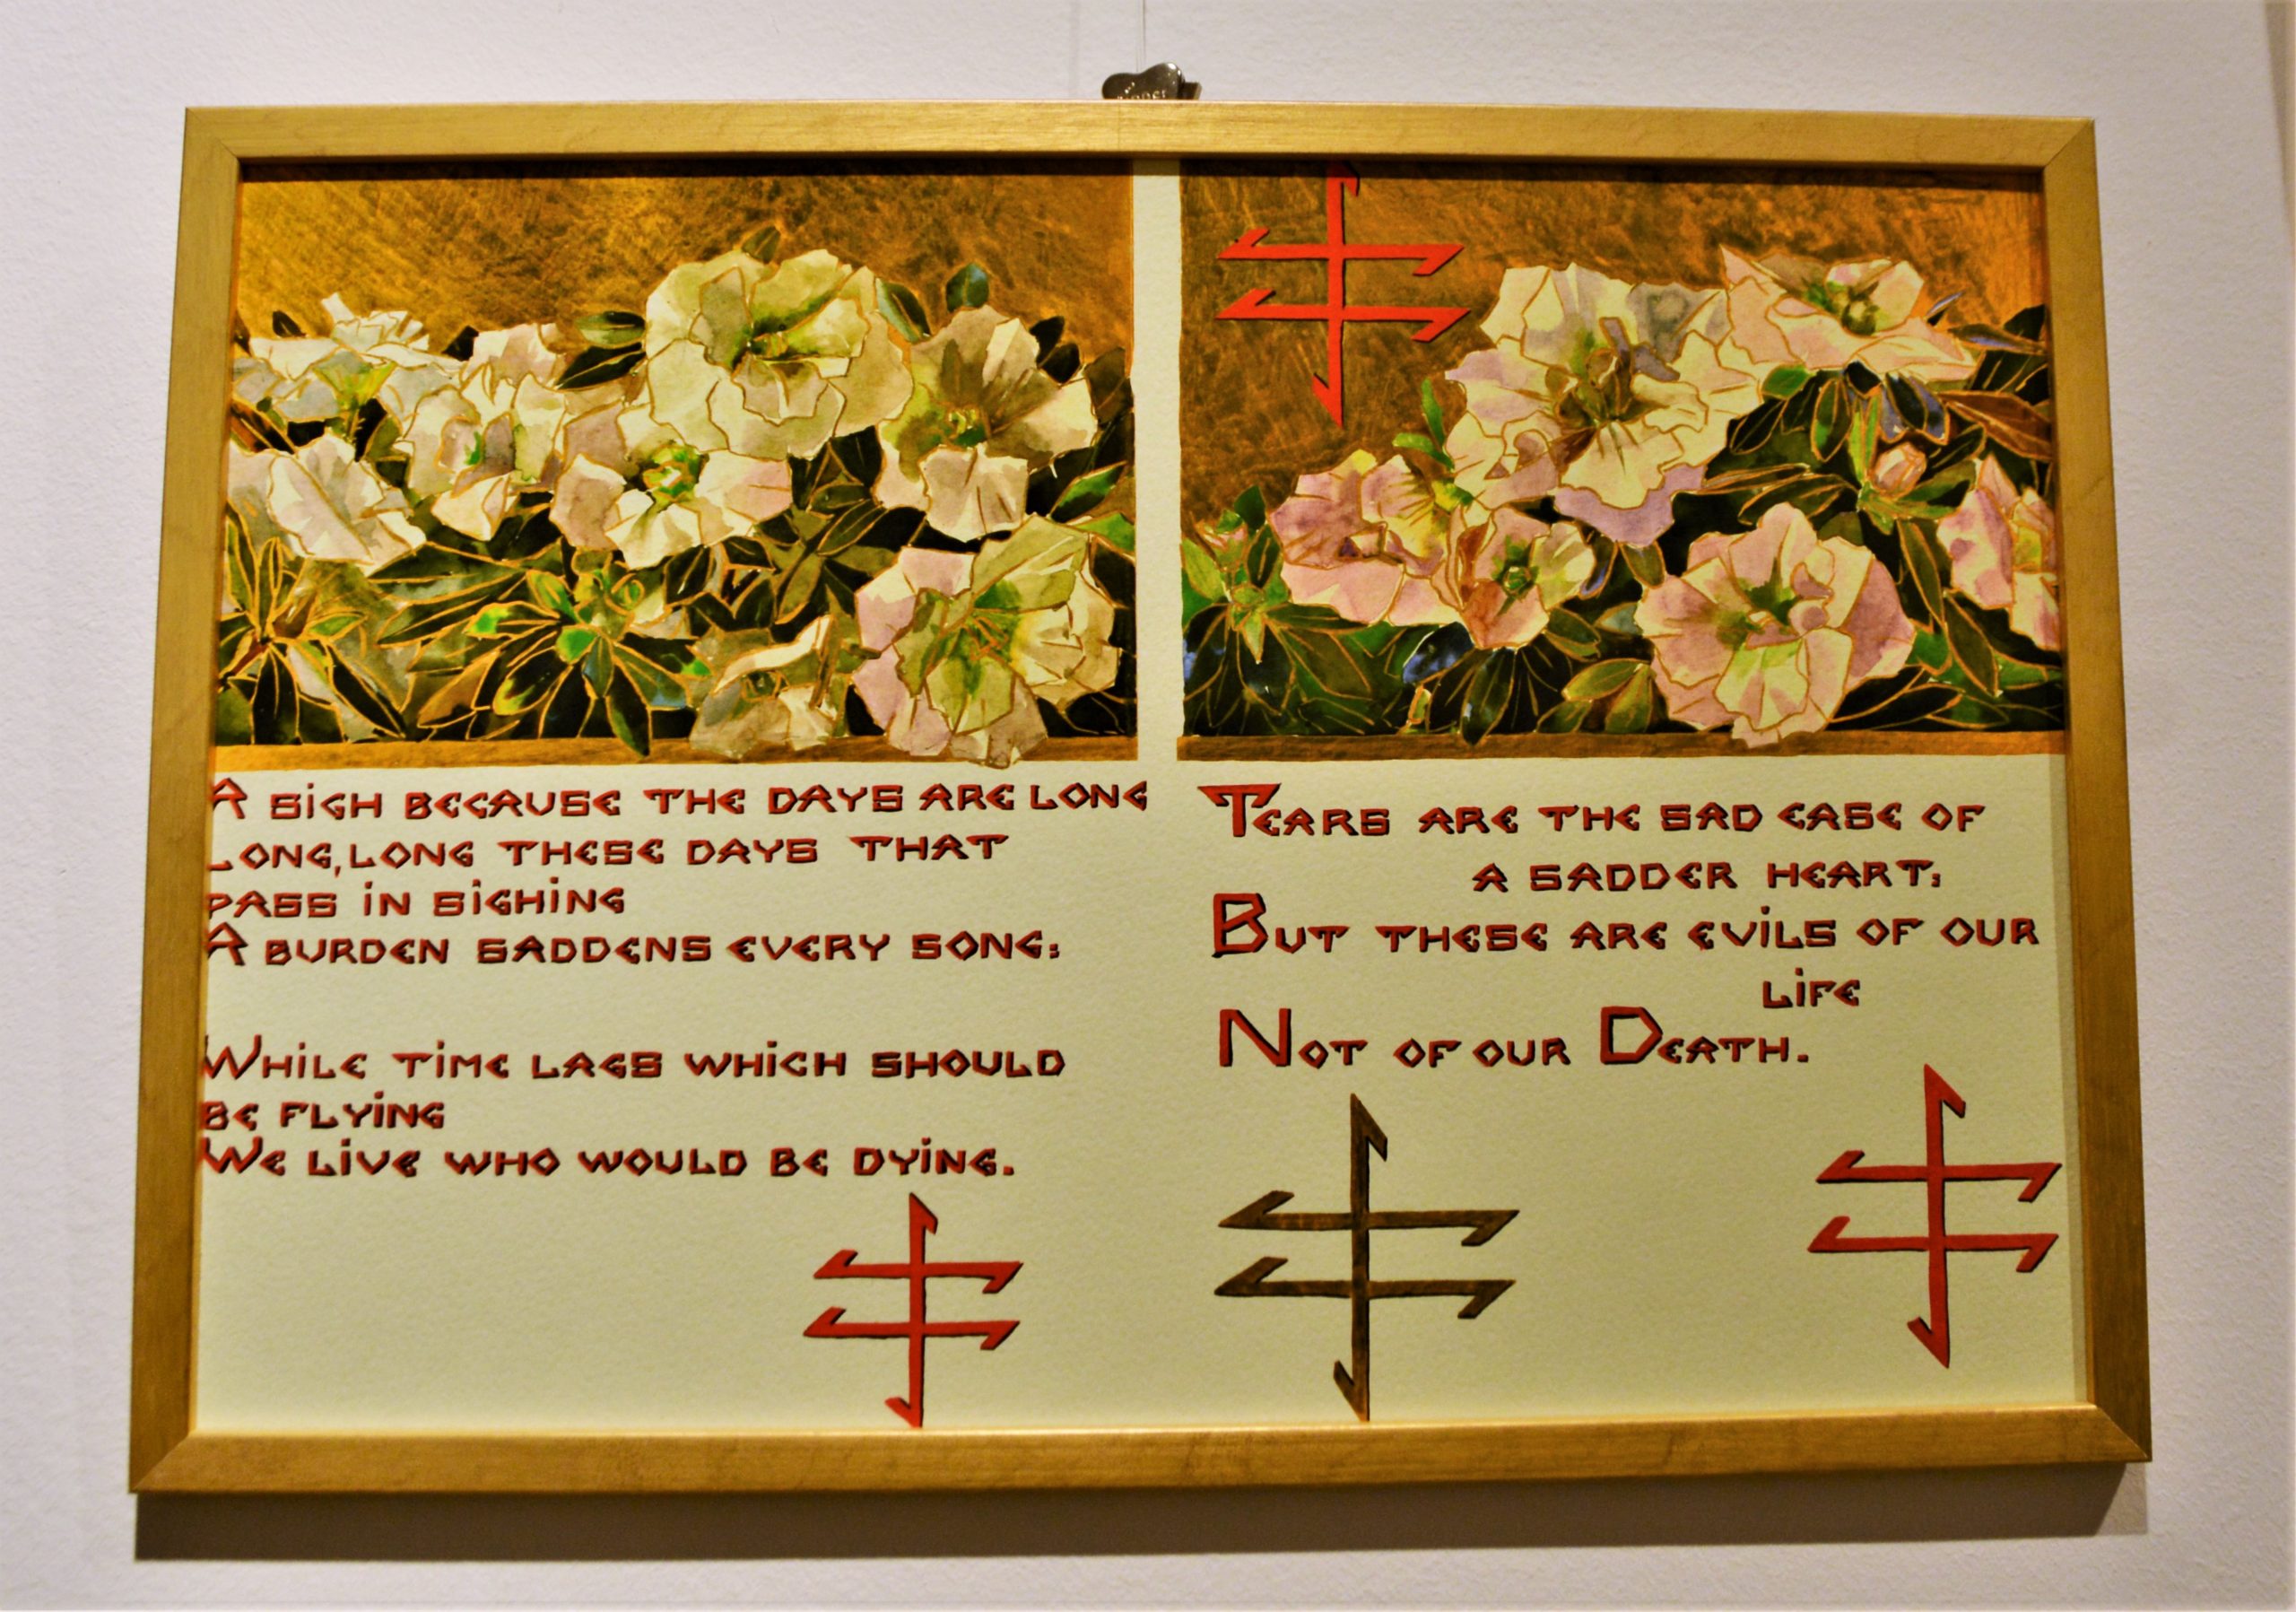 A SIGH BECAUSE THE DAYS ARE LONG
LONG, LONG THESE DAYS THAT
PASS IN SIGHING
A BURDEN SADDENS EVERY SONG:
WHILE TIME LAGS WHICH SHOULD
BE FLYING
WE LIVE WHO WOULD BE DYING.
TEARS ARE THE SAD EASE OF
A SADDER HEART;
BUT THESE ARE EVILS OF OUR
LIFE
NOT OF OUR DEATH.